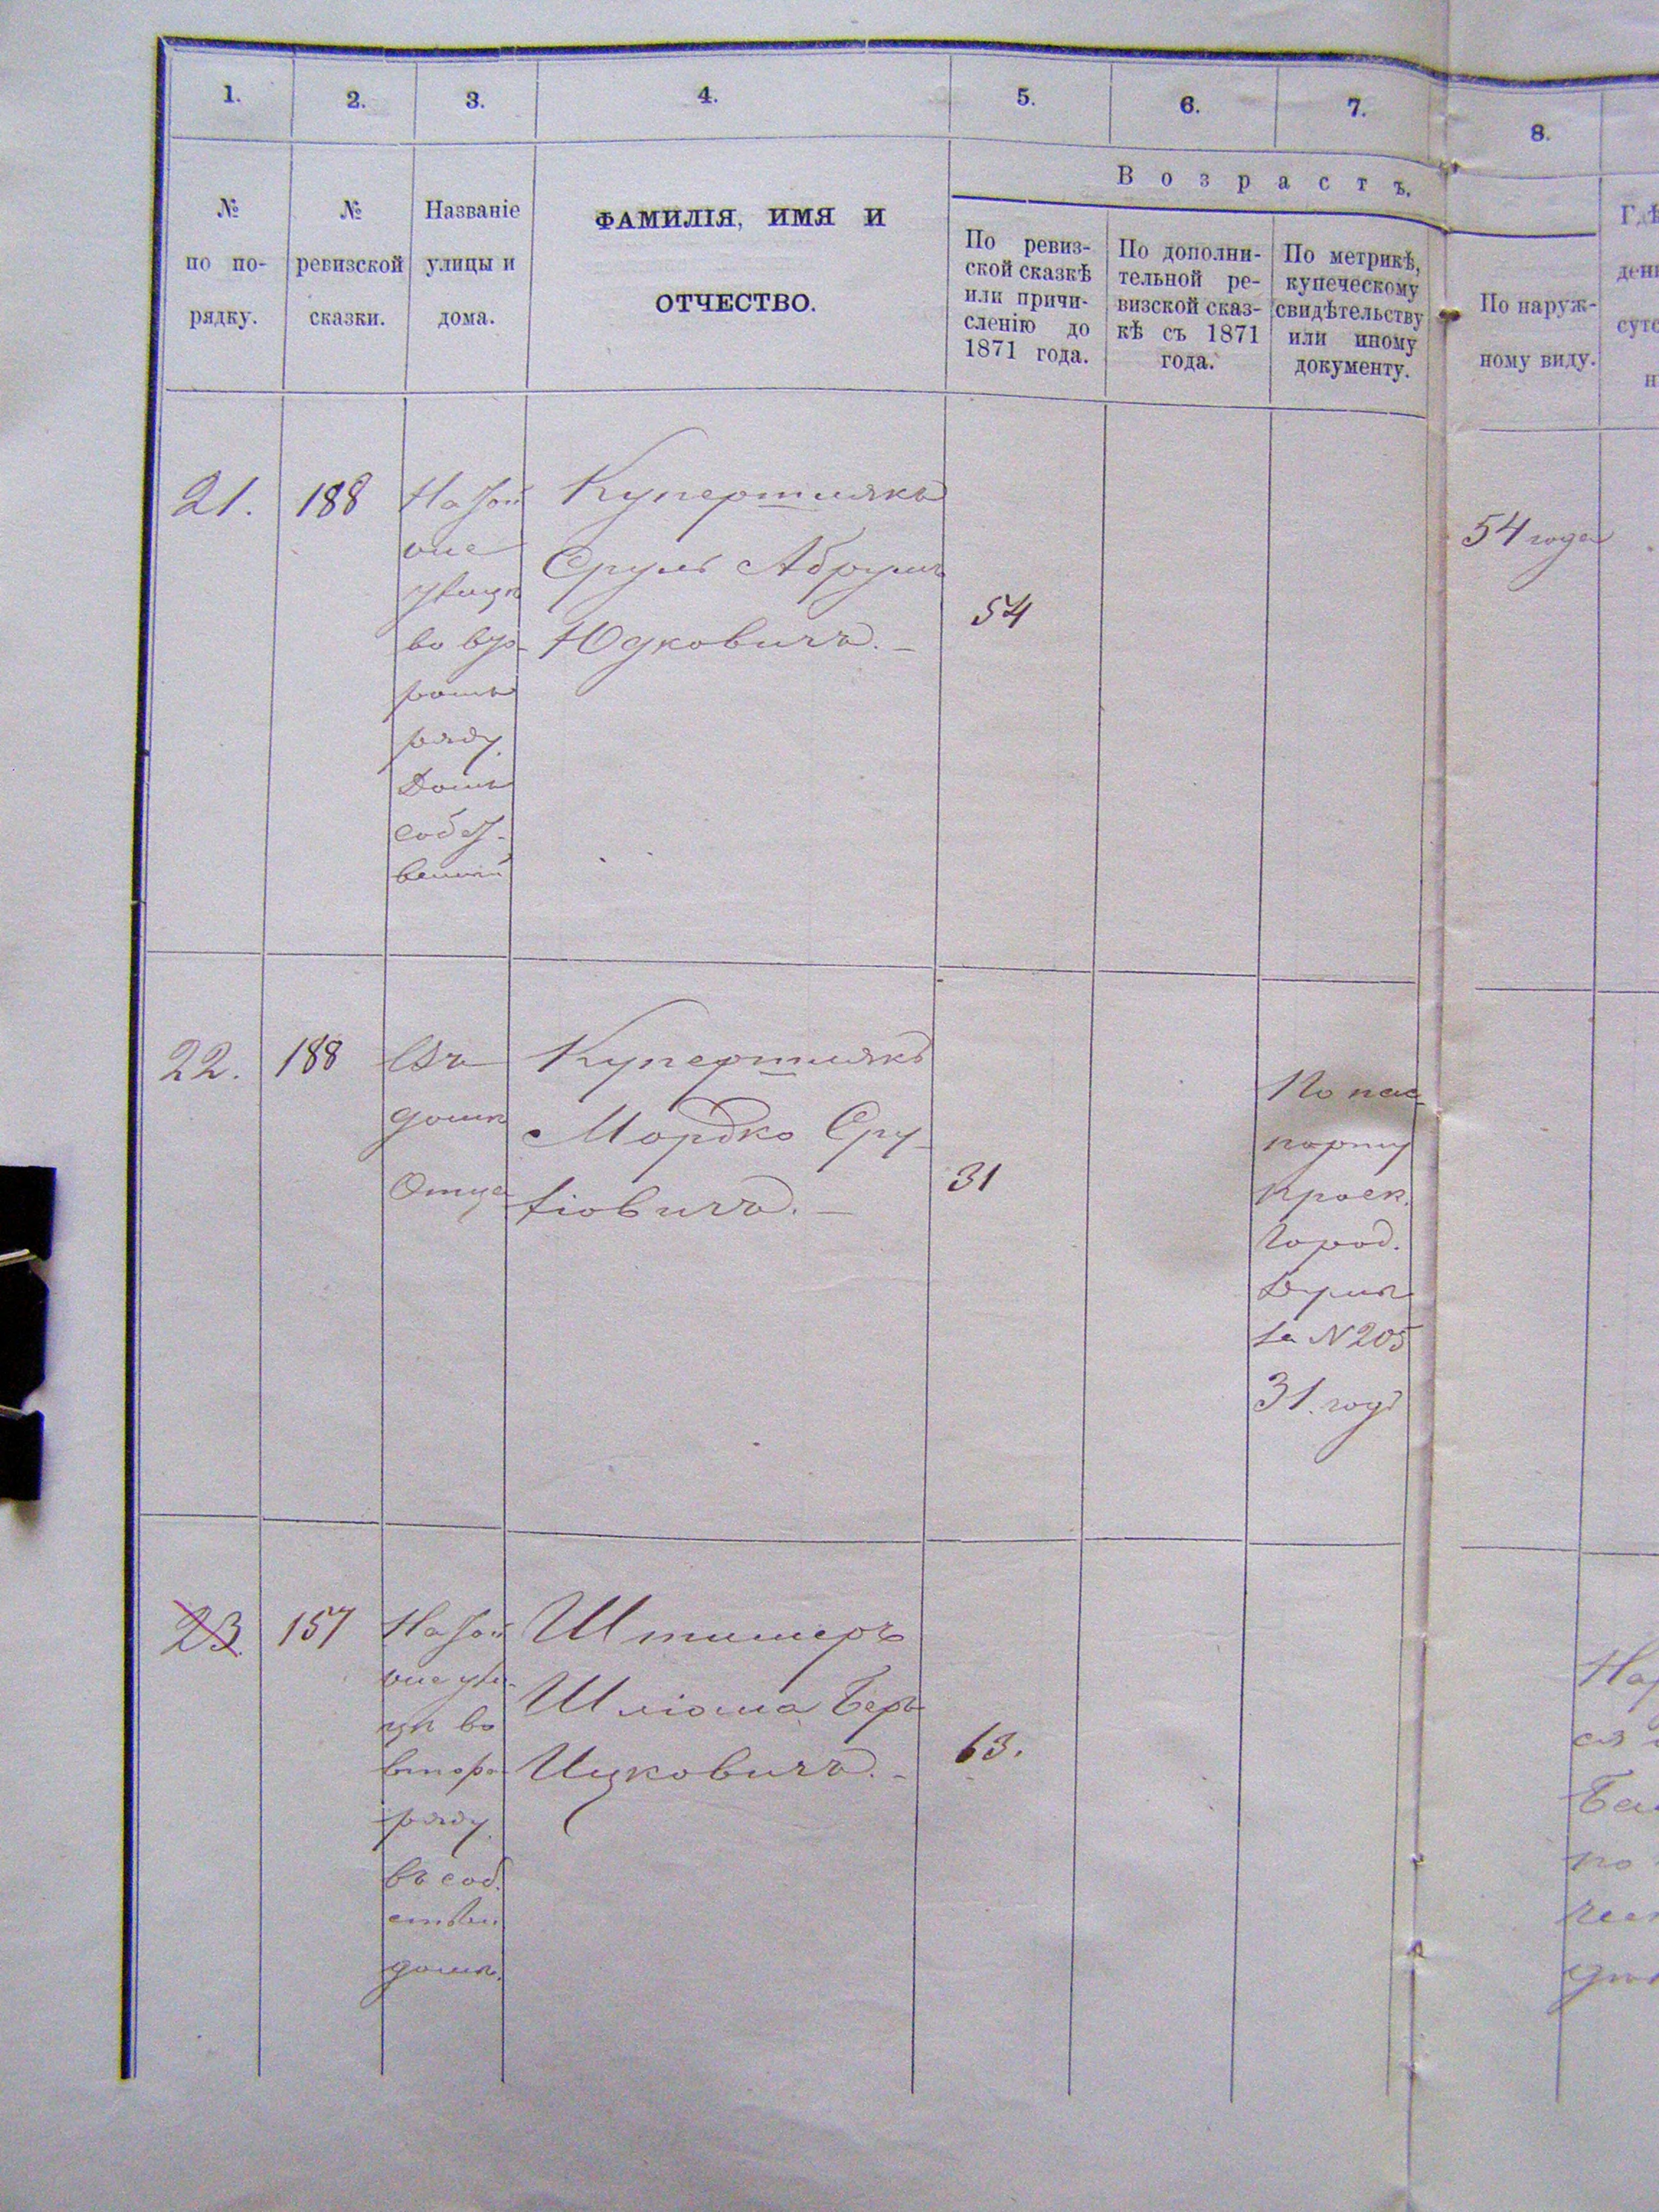 1.
2.
3.
4.
5.
6.
7.
8.
№
по по-
рядку.
№
ревизской
сказки.
Названіе
улицы и
дома.
ФАМИЛІЯ, ИМЯ И
ОТЧЕСТВО.
Возрастъ.
По ревиз-
ской сказкѣ
или причи-
сленію до
1871 года.
По дополни-
тельной ре-
визской сказ-
кѣ съ 1871
года.
По метрикѣ,
купеческому
свидѣтельству
или иному
документу.
По наруж-
ному виду.
21.
188
улицѣ
во вто-
ромъ
ряду.
Домъ
собст-
венный
Купершмякъ
Сруль Абрумъ
Юдковичъ. –
54
54 года
22.
188
Въ
домѣ
Отца
Купершмякъ
Мордко Сру-
лiовичъ. –
31
По пас-
порту
Город.
за N 205
31. годъ
23.
157
ули-
цѣ во
второ-
ряду.
въ соб-
ствен.
домѣ.
Штишеръ
Шліома Беръ
Ицковичъ. –
63.